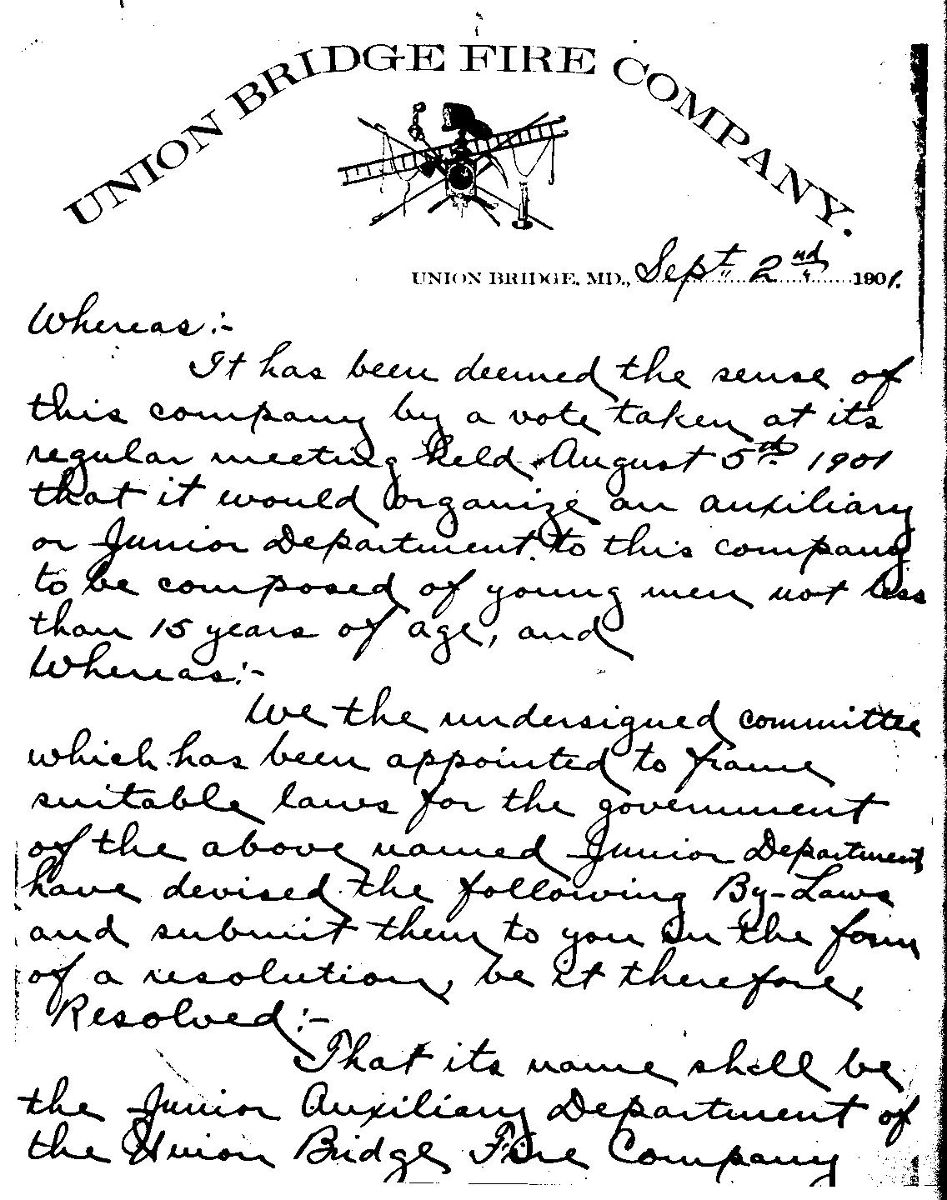 UNION BRIDGE FIRE COMPANY.
UNION BRIDGE, MD., Sept. 2nd 1901.
Whereas:-
It has been deemed the sense of
this company by a vote taken at its
regular meeting held August 5th 1901
that it would organize an auxiliary
or Junior Department to this company
to be composed of young men not less
than 15 years of age, and
Whereas:-
We the undersigned committee
which has been appointed to frame
suitable laws for the government
of the above named Junior Department
have devised the following By-Laws
and submit them to you in the form
of a resolution, be it therefore,
Resolved:-
That its name shall be
the Junior Auxiliary Department of
the Union Bridge Fire Company